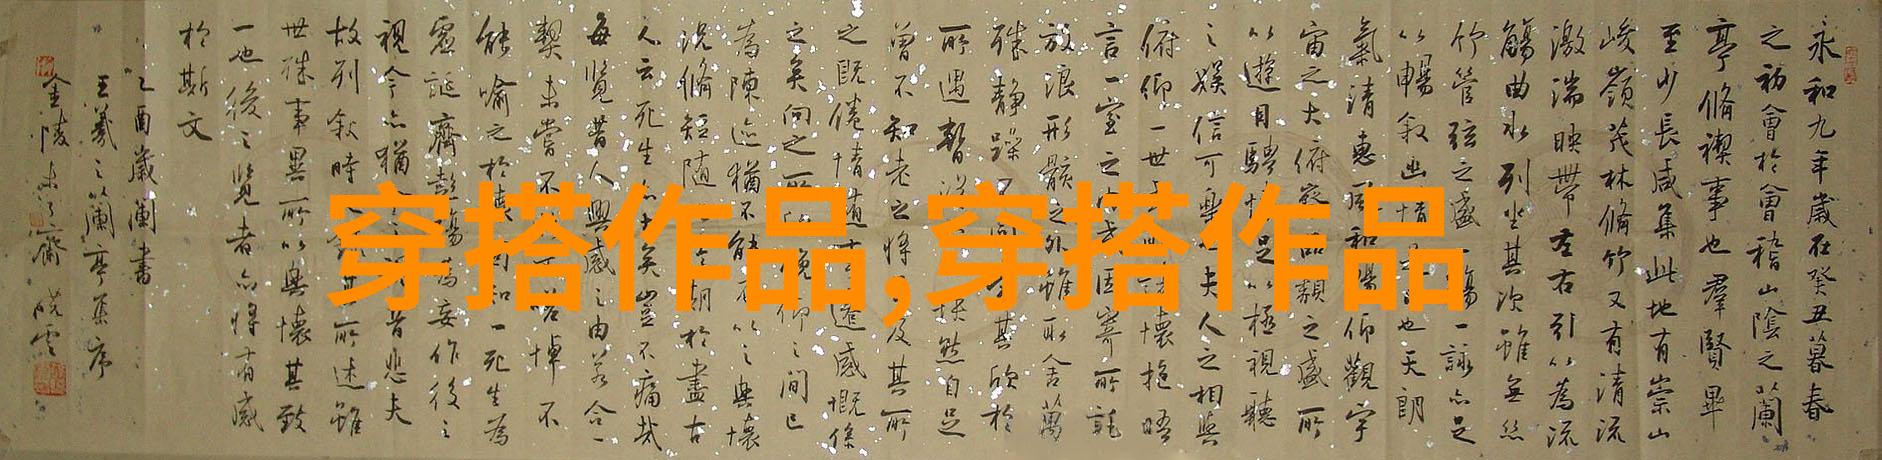 永和九年歲在癸丑暮春
之初會於會稽山陰之蘭
亭脩禊事也羣賢畢
至少長咸集此地有崇山
峻嶺茂林脩竹又有清流
激湍映帶左右引以為流
觴曲水列坐其次雖無絲
竹管弦之盛一觴一詠亦足
以暢叙幽情是日也天朗
氣清惠風和暢仰觀宇
宙之大俯察品類之盛所
以遊目騁懷足以極視聽
之娛信可樂也夫人之相與
俯仰一世懷抱晤
言一室之內或因寄所託
放浪形骸之外雖取舍萬
殊靜躁不同其欣於
所遇暫快然自足
曾不知老之將及其所
之既倦情隨事遷感慨係
之矣向之所俛仰之間已
為陳迹猶不能不以之興懷
況脩短隨朝於盡古
人云死生亦大矣豈不痛哉
每覽昔人興感之由若合一
契未嘗不悼不
能喻之於懷固知一死生為
虛誕齊彭殤為妄作後之
視今亦猶今之視昔悲夫
故列叙時其所述雖
世殊事異所以興懷其致
一也後之覽者亦將有感
於斯文
乙酉歲蘭書
王羲之蘭亭集序
金陵
穿搭作品,穿搭作品